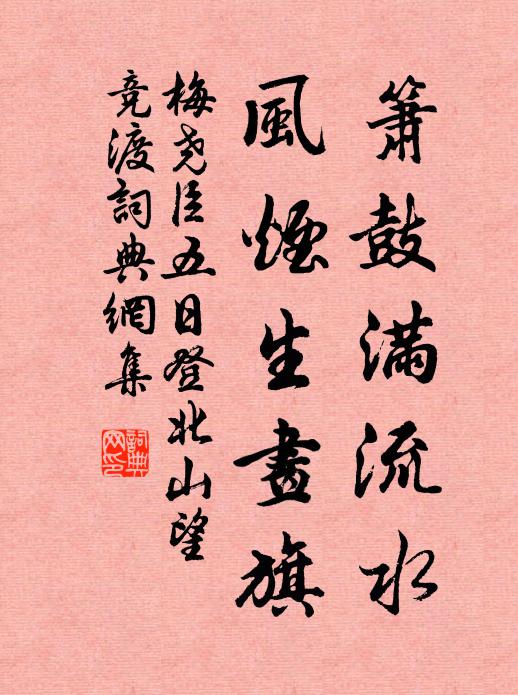 簫鼓滿流水
風煙生畫旗
梅堯臣五日登北山望
競渡詞典網集
詞典網印